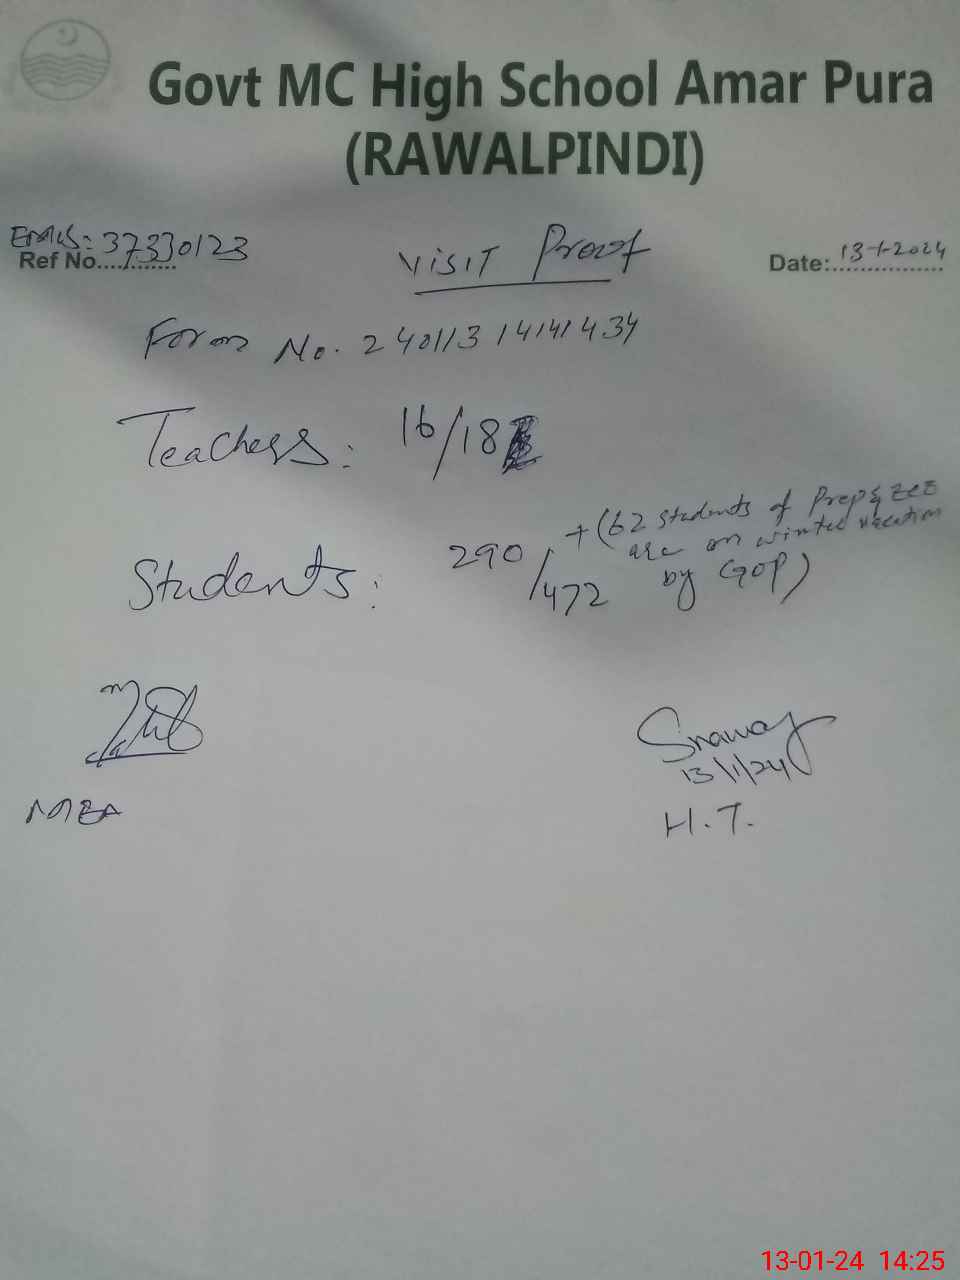 Govt MC High School Amar Pura
(RAWALPINDI)
EMIS: 37330123
Ref No............
Visit Proof
Date:................ 13-1-2024
Form No. 24011314141434
Teachers: 16/18
Students: 290/472 + (62 students of Prep & ECE
are on winter vacation
by GOP)
13/1/24
MEA
H.T.
13-01-24 14:25